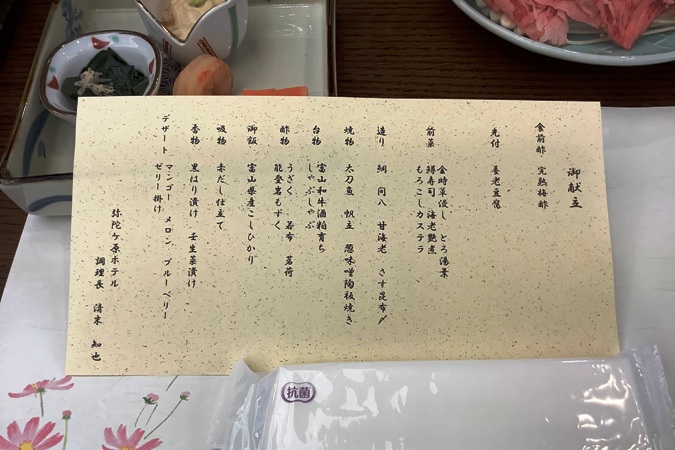 御献立
食前酢 完熟梅酢
先付 養老豆腐
前菜
金時草浸し とろ湯葉
鱒寿司 海老艶煮
もろこしカステラ
造り 鯛 間八 甘海老 さす昆布〆
焼物 太刀魚 帆立 葱味噌陶板焼き
台物 富山和牛酒粕育ち
しゃぶしゃぶ
酢物 うざく 若布 茗荷
能登岩もずく
御飯 富山県産こしひかり
吸物 赤だし仕立て
香物 黒はり漬け 壬生菜漬け
デザート マンゴー メロン ブルーベリー
ゼリー掛け
弥陀ケ原ホテル
調理長 清末 知也
抗菌